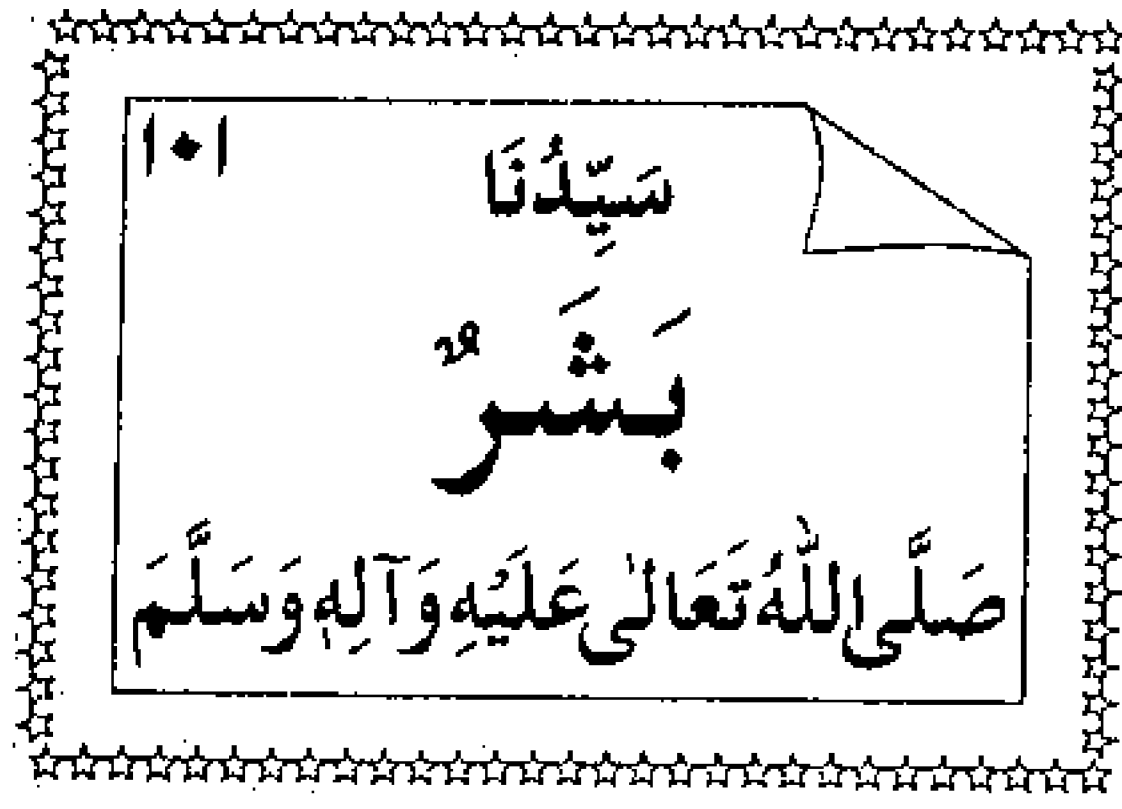 ١٠١
سَيِّدُنَا
بَشَرٌ
صَلَّى اللّٰهُ تَعَالٰى عَلَيْهِ وَآلِهٖ وَسَلَّمَ